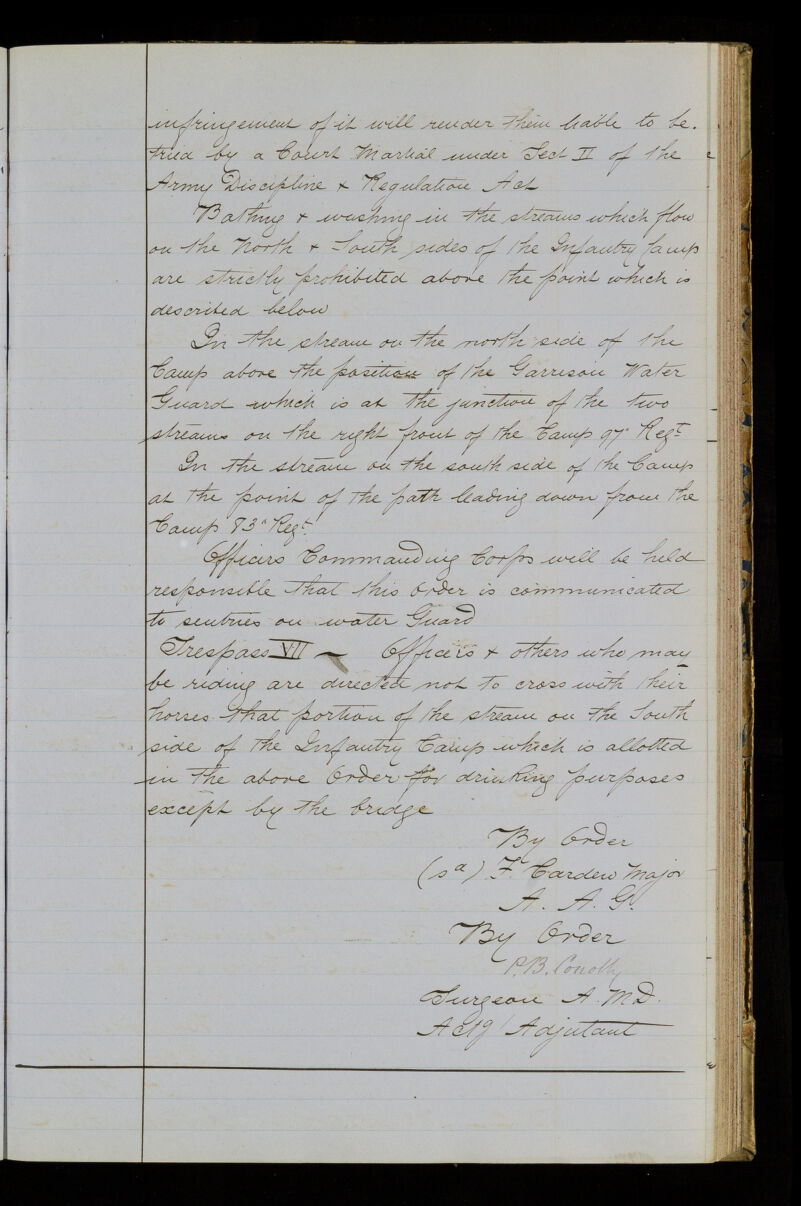 infringement of it will render them liable to be.
tried by a Court Martial under Sect II of the
Army Discipline & Regulation Act
Bathing & washing in the streams which flow
on the North & South sides of the Infantry Camp
are strictly prohibited above the point which is
described below
In the stream on the north side of the
Camp above the position of the Garrison Water
Guard which is at the junction of the two
streams on the right front of the Camp 97th Regt
In the stream on the south side of the Camp
at the point of the path leading down from the
Camp 83rd Regt.
Officers Commanding Corps will be held
responsible that this order is communicated
to sentries on water Guard
Trespass VII — Officers & others who may
be riding are directed not to cross with their
horses that portion of the stream on the South
side of the Infantry Camp which is allotted
in the above Order for drinking purposes
except by the bridge
By Order
(sd) F. Cardew Major
A. A. G.
By Order
P.B. Conolly
Surgeon A.M.D.
Actg Adjutant